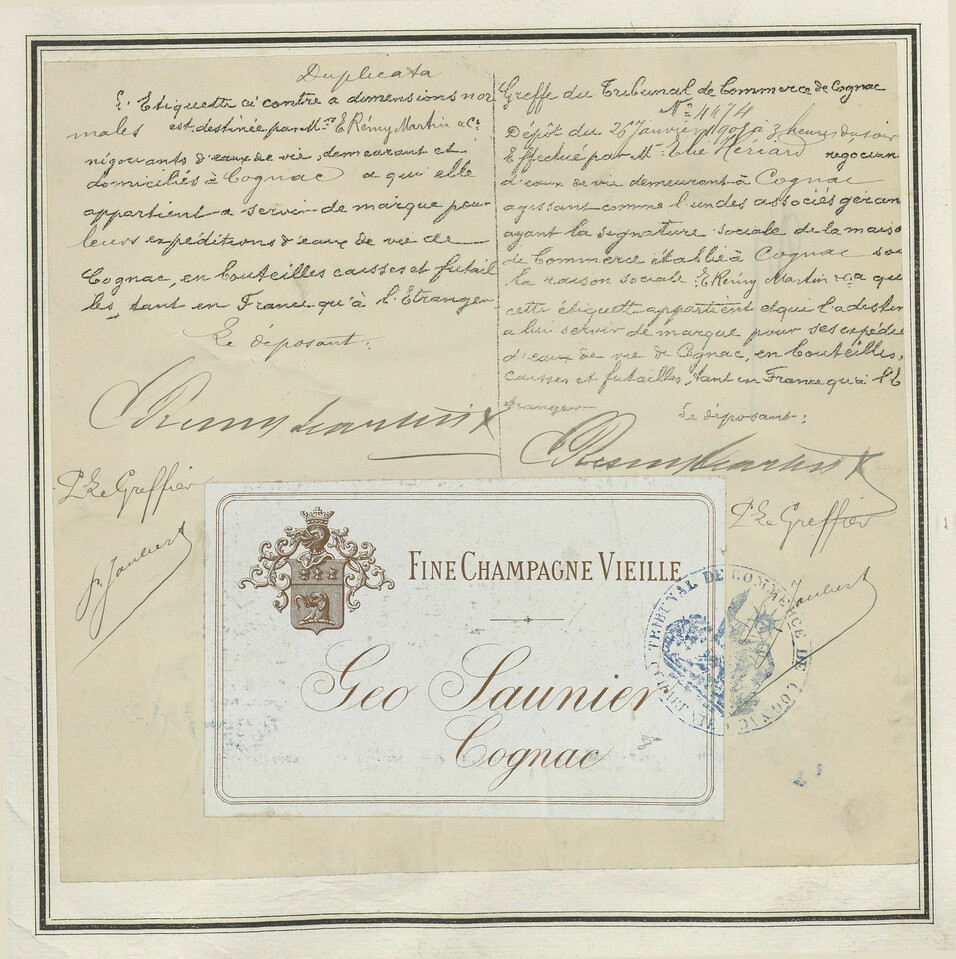 Duplicata
L'Etiquette ci contre a dimensions nor
males est destinée par Mrs E. Rémy Martin & Cie
négociants d'eaux de vie, demeurant et
domiciliés à Cognac a qui elle
appartient a servir de marque pour
leurs expéditions d'eaux de vie de
Cognac, en bouteilles caisses et futail
les, tant en France qu'à l'Etranger
Le déposant:
E Remy Martin & Co
P. Le Greffier
J. Joubert
Greffe du Tribunal de Commerce de Cognac
No 4474
Dépôt du 26 Janvier à 3 heures du soir
Effectué par Mr Elie Hériard négocian
d'eaux de vie demeurant à Cognac
agissant comme l'un des associés géran
ayant la signature sociale de la maiso
de Commerce établie à Cognac sou
la raison sociale E Rémy Martin & Co a qu
cette étiquette appartient et qui l'a destin
a lui servir de marque pour ses expédi
d'eaux de vie de Cognac, en bouteilles,
caisses et futailles, tant en France qu'à l'E
tranger
Le déposant:
E Remy Martin & Co
P. Le Greffier
Joubert
FINE CHAMPAGNE VIEILLE
Geo Saunier
Cognac
TRIBUNAL DE COMMERCE DE COGNAC